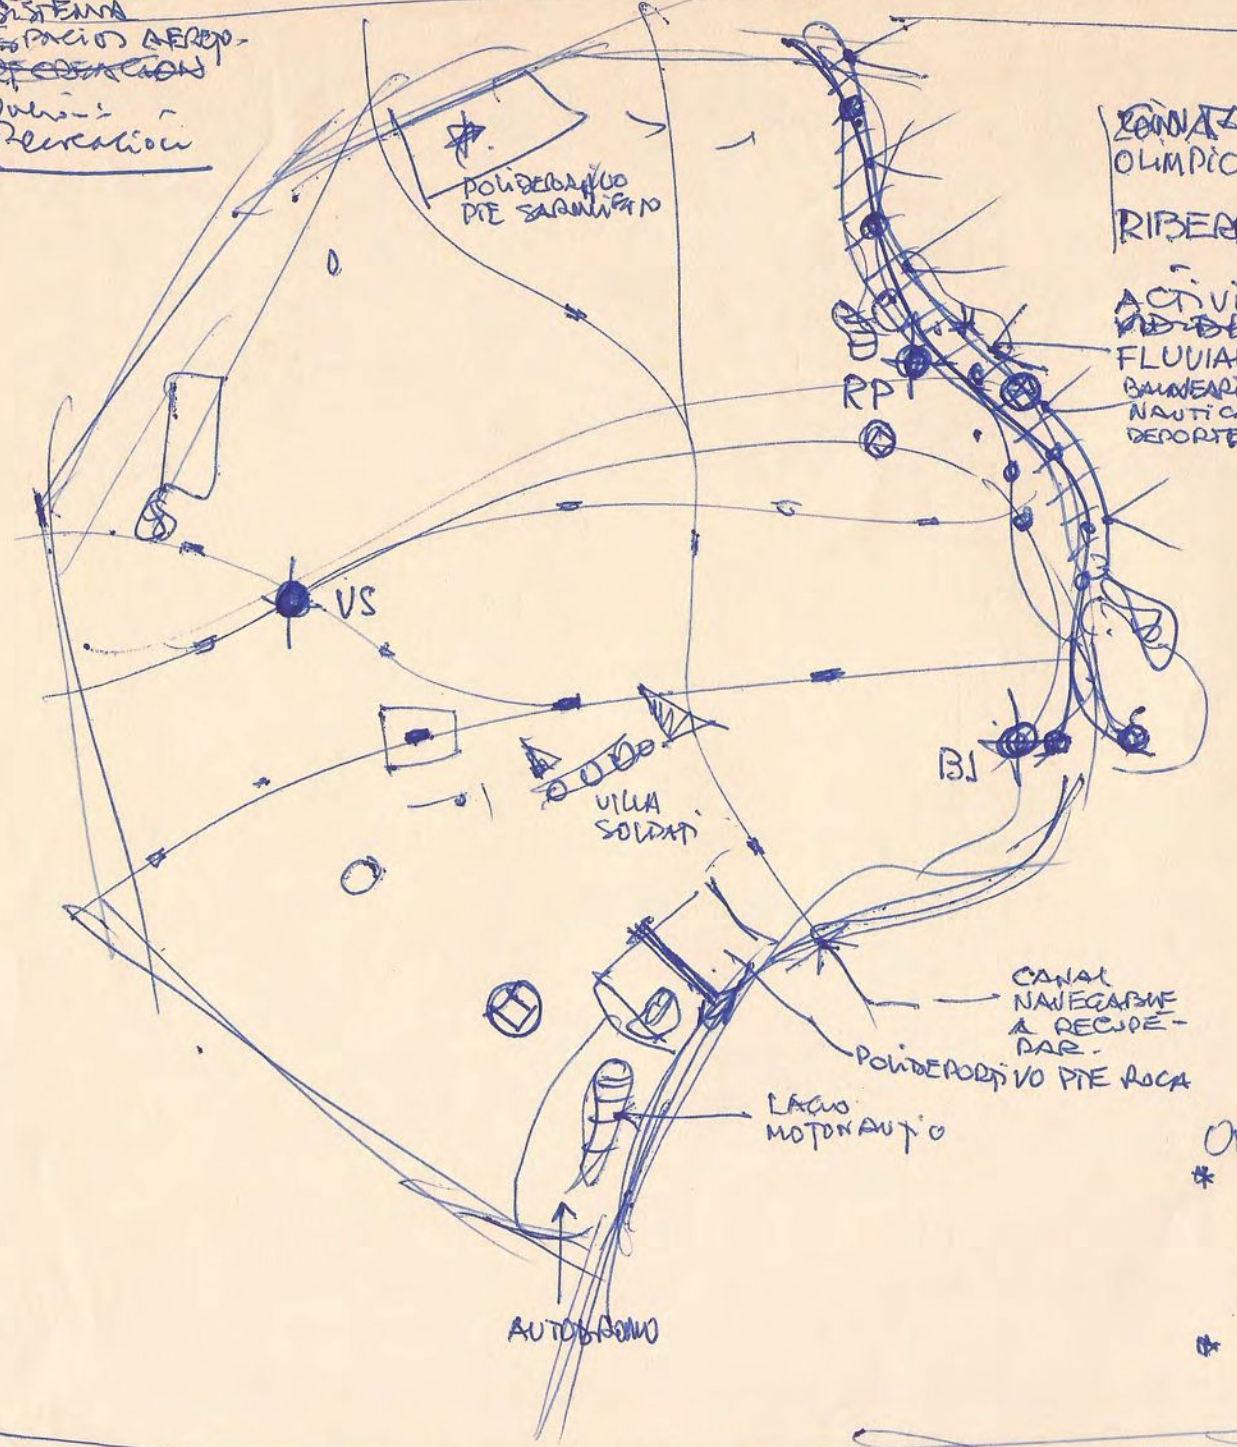 SISTEMA
ESPACIOS AEREO-
RECREACION
Recreación
POLIDEPORTIVO
PTE SARMIENTO
OLIMPIC
RIBER
ACTIVI
FLUVIA
BALNEARI
NAUTICA
DEPORTE
RP
VS
BJ
VILLA
SOLDATI
CANAL
NAVEGABLE
A RECUPE-
RAR.
POLIDEPORTIVO PTE ROCA
LAGO
MOTONAUTICO
AUTODROMO
*
*